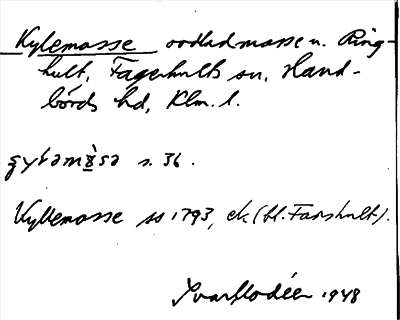 Kylemosse oodlad mosse n. Ring-
hult, Fagerhults sn, Hand-
börds hd, Klm. l.
s. 36.
Kyllemosse ss 1793, ek (bl. Farshult).
Ivar Modéer 1948